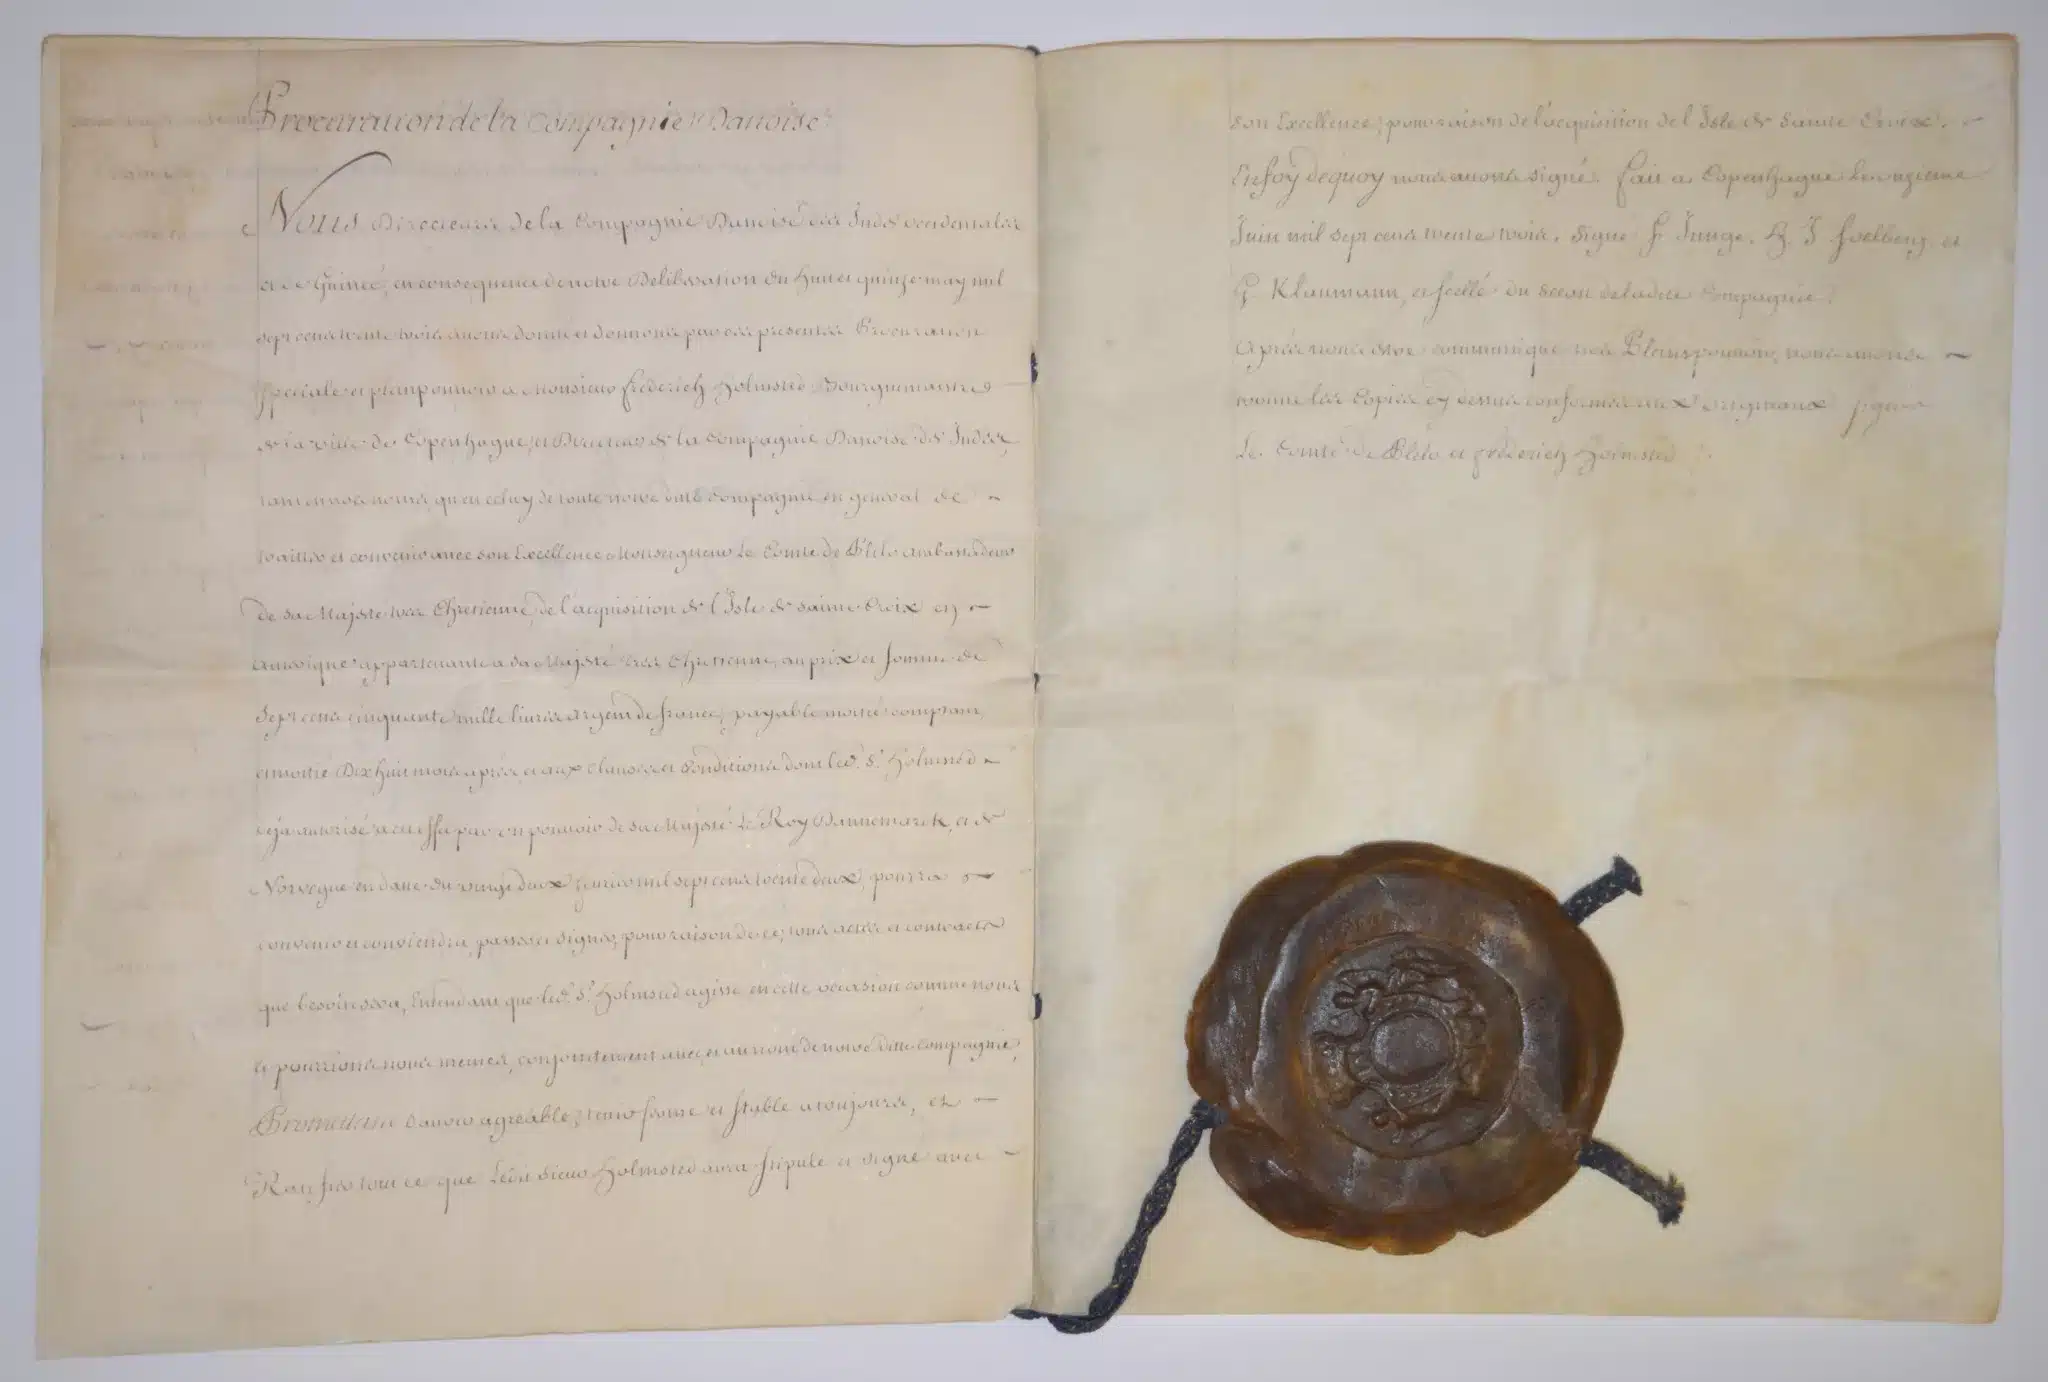 Procuration de la Compagnie Danoise
Nous Directeurs de la Compagnie Danoise des Indes occidentales
et de Guinée, en consequence de notre Deliberation du Huit et quinze may mil
sept cens trente trois avons donné et donnons par ces presentes Procuration
speciale et plein pouvoir a Monsieur frederich Holmsted Bourguemaistre
de la ville de Copenhague, et Directeur de la Compagnie Danoise des Indes,
tant en nos noms, qu'en celuy de toute notre ditte Compagnie en general de
traitter et convenir avec son Excellence Monseigneur Le Comte de Plelo ambassadeur
de sa Majesté tres Chretienne, de l'acquisition de l'Isle de sainte Croix en
amerique appartenante a sa Majesté tres Chretienne, au prix et somme de
sept cens cinquante mille livres argent de france, payable moitié comptant,
et moitié Dix huit mois aprés, et aux clauses et conditions dont led. Sr. Holmsted
deja autorisé a cet effet par un pouvoir de sa Majesté Le Roy Dannemarck, et de
Norvegue en datte du vingt deux mil sept cens trente deux, pourra
convenir et conviendra, passer et signer, pour raison de ce, tous actes et contracts
que besoin sera, Entendant que led. Sr. Holmsted agisse en cette occasion comme nous
le pourrions nous memes, conjointement avec, et au nom de notre ditte Compagnie,
Promettant d'avoir agréable, tenir ferme et stable a toujours, et
Ratifier tout ce que Ledit sieur Holmsted aura stipulé et signé avec
son Excellence, pour raison de l'acquisition de l'Isle de sainte Croix.
En foy de quoy nous avons signé. fait a Copenhague Le onzieme
Juin mil sept cens trente trois. signé F Junge. H. J Soelberg et
G Klaumann, et scellé du sceau de la dite Compagnie.
Aprés nous etre communiqué nos Pleinspouvoirs, nous avons
trouvé les Copies cy dessus conformes aux originaux signé
Le Comte de Plelo et frederich Holmsted